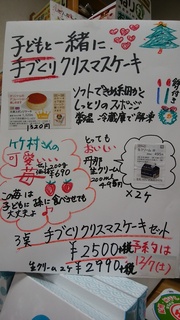 子どもと一緒に、
手づくりクリスマスケーキ
ソフトできめ細かい
しっとりのスポンジ
常温・冷蔵庫で解凍
1520円
竹村さんの
可愛い
苺
約200g
¥690
この苺は
子どもに孫に食べさせても
大丈夫よ
とっても
おいしい
丹那
生クリーム
200ml
×2ヶ
3点
手づくりクリスマスケーキセット
¥2500+税
生クリーム2ヶ ¥2990+税
予約〆は
12/7(土)